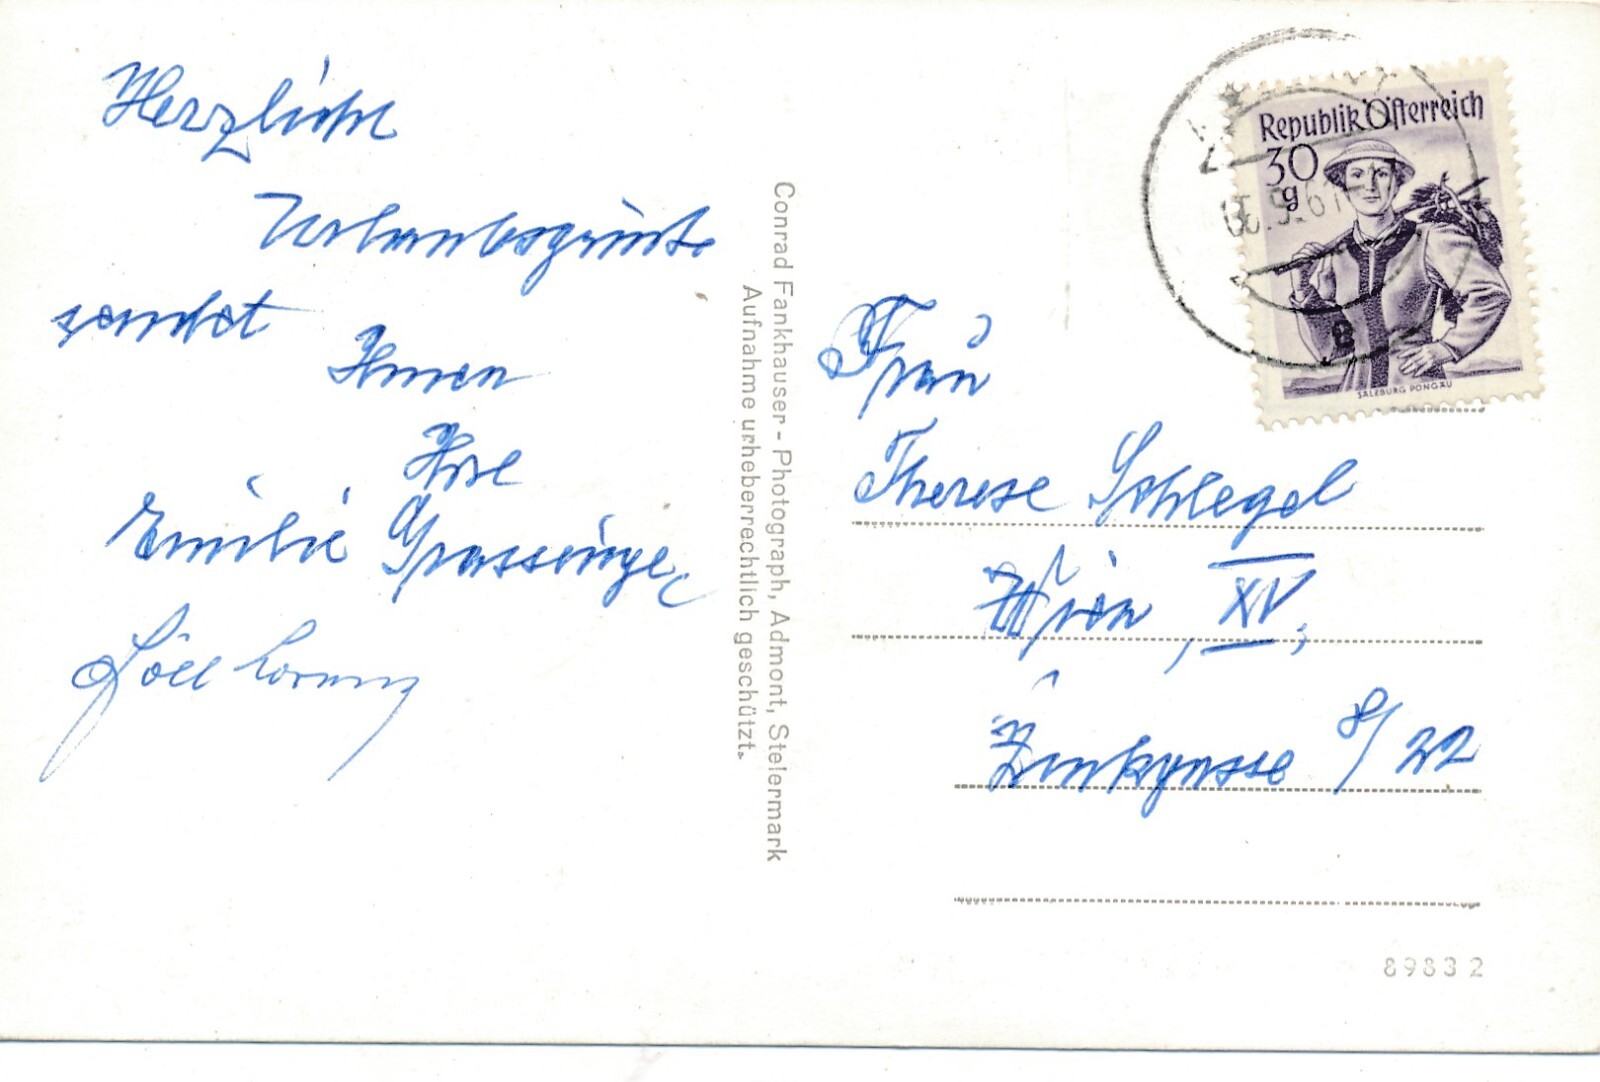 Herzliche
Urlaubsgrüße
sendet
Ihnen
Ihre
Emilie Grassinger
Conrad Fankhauser - Photograph, Admont, Steiermark
Aufnahme urheberrechtlich geschützt.
Republik Österreich
30
g
SALZBURG PONGAU
9.61
Frau
Therese Schlegel
Wien, XV,
Zinkgasse 8/22
89832